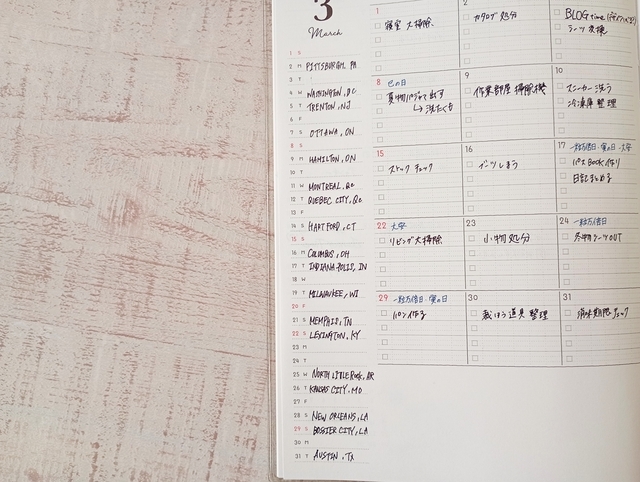 3
March
1 S
2 M PITTSBURGH, PA
3 T
4 W WASHINGTON, DC
5 T TRENTON, NJ
6 F
7 S OTTAWA, ON
8 S
9 M HAMILTON, ON
10 T
11 W MONTREAL, QC
12 T QUEBEC CITY, QC
13 F
14 S HARTFORD, CT
15 S
16 M COLUMBUS, OH
17 T INDIANAPOLIS, IN
18 W
19 T MILWAUKEE, WI
20 F
21 S MEMPHIS, TN
22 S LEXINGTON, KY
23 M
24 T
25 W NORTH LITTLE ROCK, AR
26 T KANSAS CITY, MO
27 F
28 S NEW ORLEANS, LA
29 S BOSSIER CITY, LA
30 M
31 T AUSTIN, TX
1
寝室 大掃除
2
カタログ 処分
BLOG time
ラーツ 交換
8 巳の日
夏物パジャマ出す
↳ 洗たくも
9
作業部屋 掃除機
10
スニーカー洗う
冷凍庫 整理
15
ストック チェック
16
ブーツしまう
17 一粒万倍日・寅の日・大安
パスBOOK作り
日記まとめる
22 大安
リビング大掃除
23
小物 処分
24 一粒万倍日
冬物ブーツOUT
29 一粒万倍日 寅の日
パン作る
30
裁ほう道具 整理
31
消味期限チェック